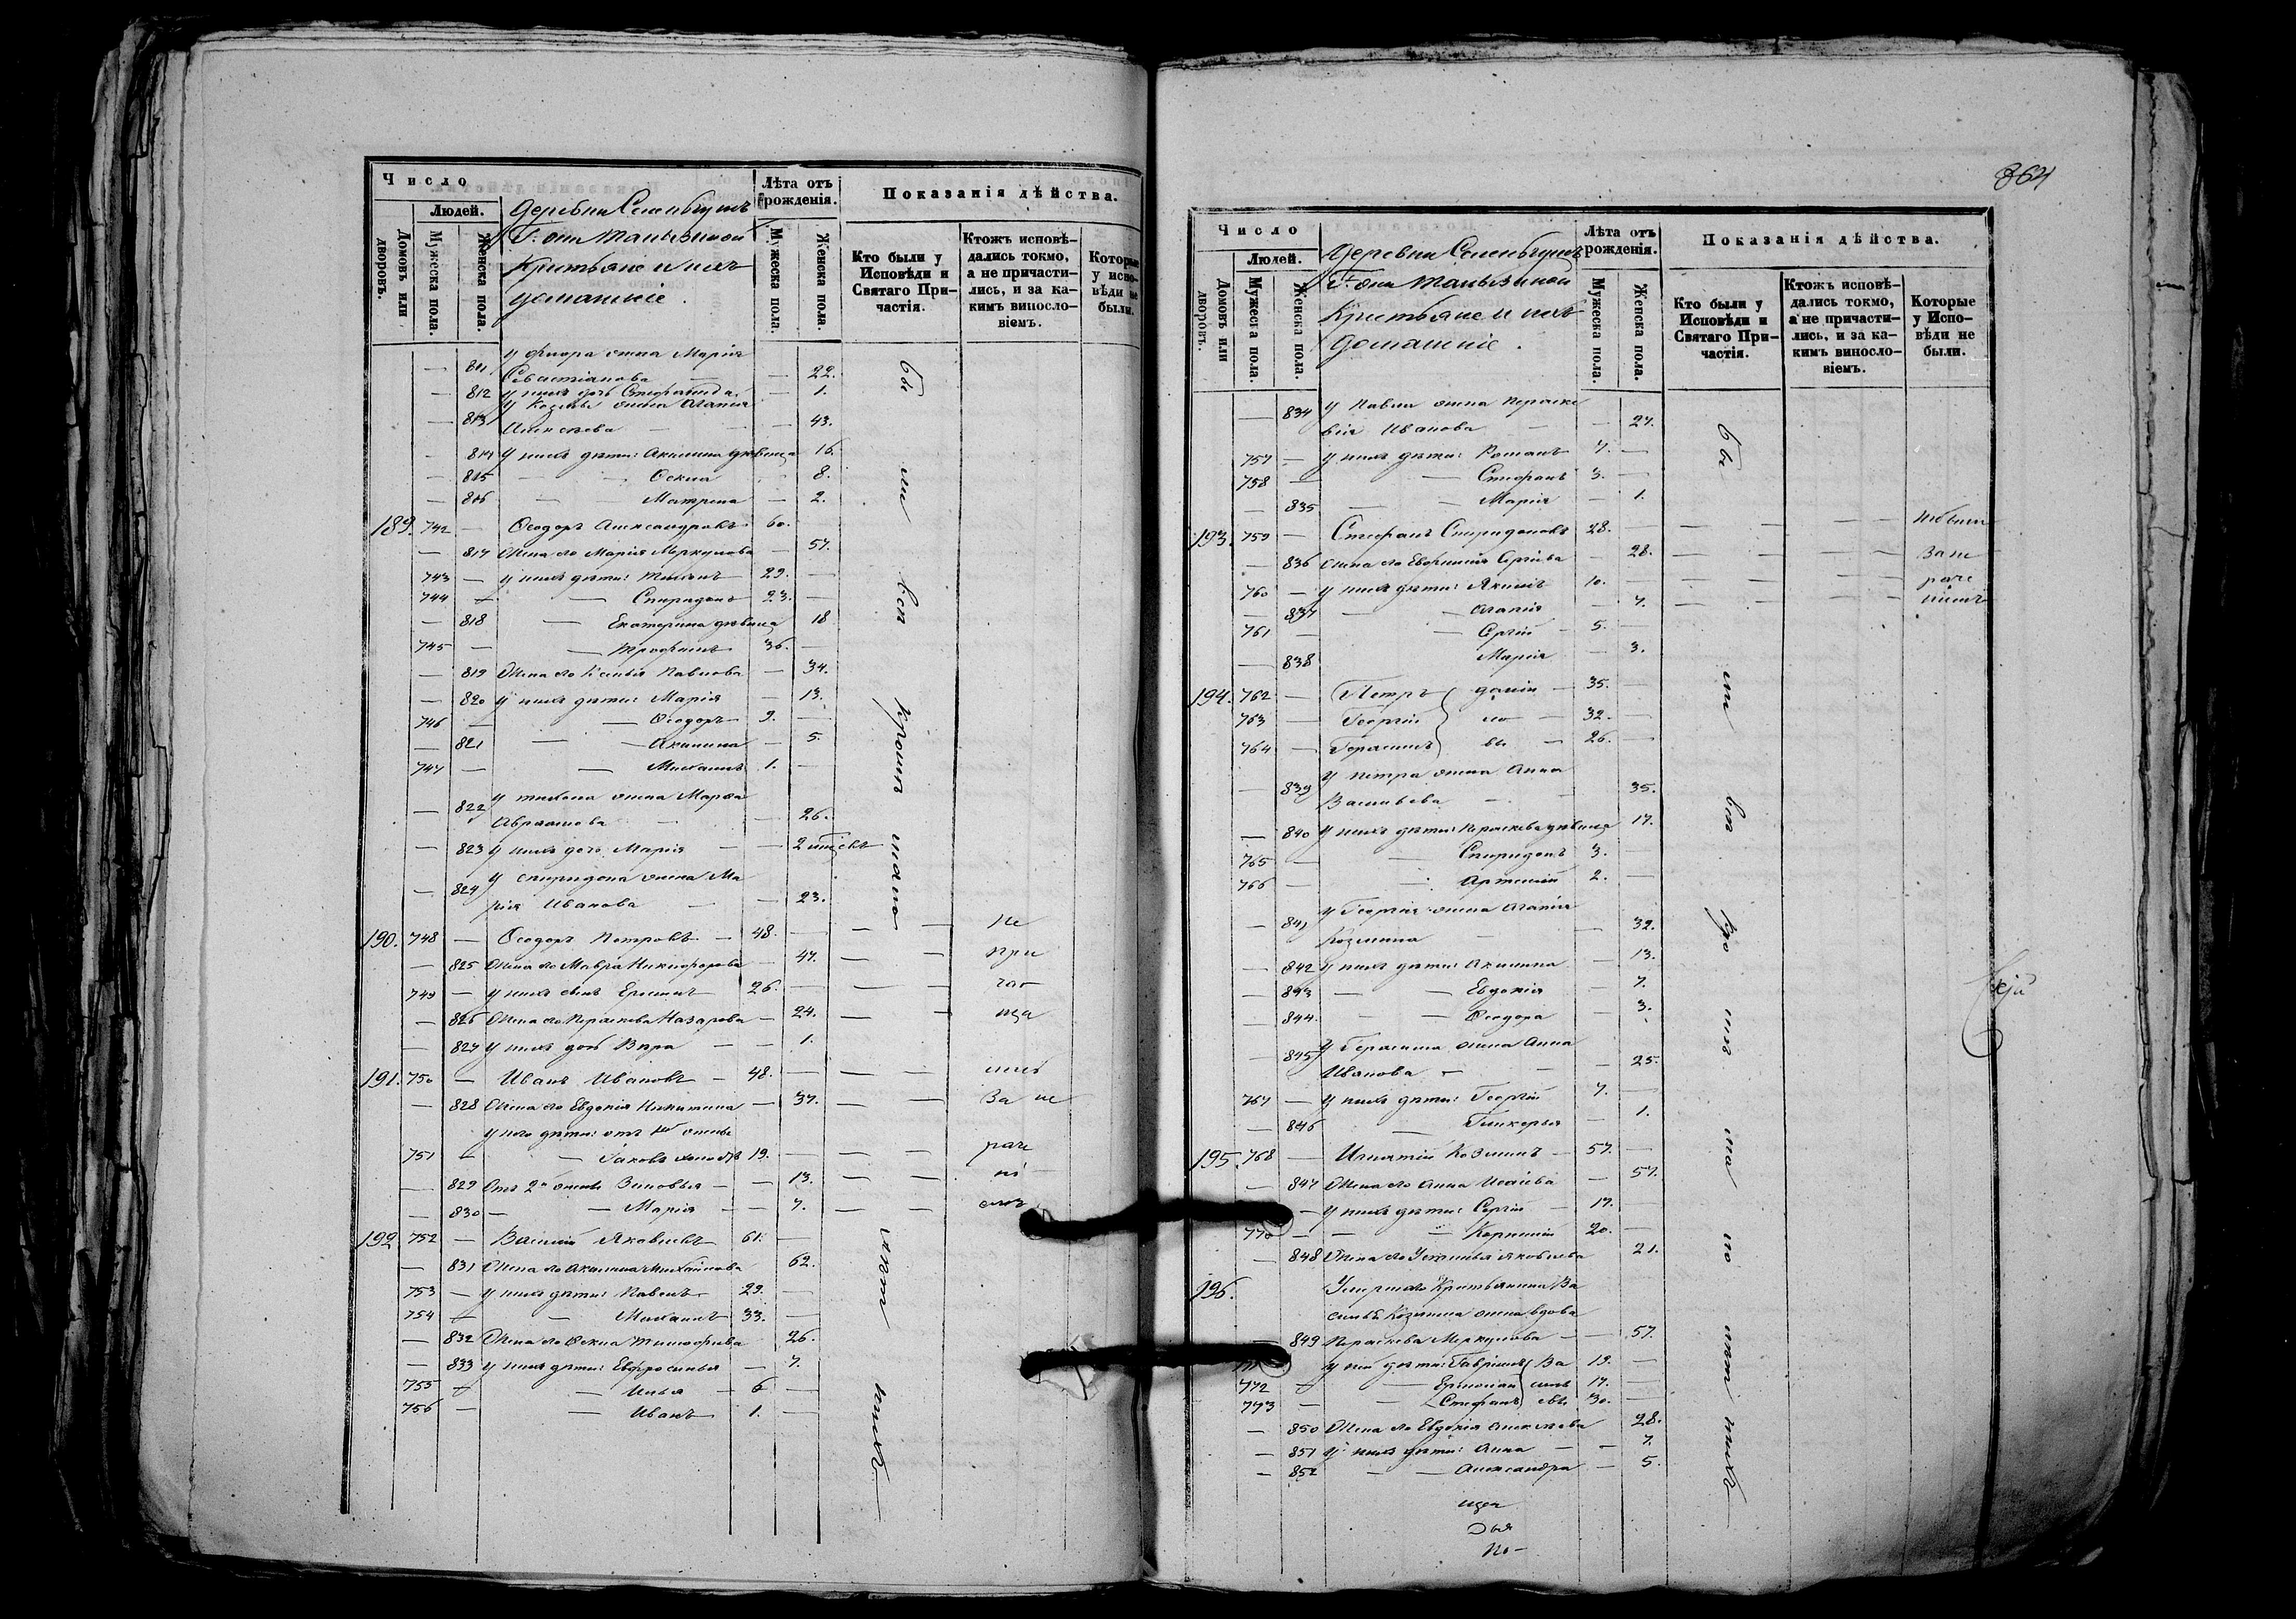 Число
Людей.
Домовъ или дворовъ.
Мужеска пола.
Женска пола.
Деревни
Г: они
Крестьяне и ихъ
домашніе.
Лѣта отъ рожденія.
Мужеска пола.
Женска пола.
Показанія дѣйства.
Кто были у Исповѣди и Святаго Причастія.
Ктожъ исповѣдались токмо, а не причастились, и за какимъ винословіемъ.
Которые у исповѣди не были.
811 У жена Марія
Севастіанова — 22.
812 у нихъ дочь Стефанида — 1.
813 У Козьмы жена Агапія
Алексѣева — 43.
814 У нихъ дѣти: Акилина дѣвица 16.
815 — Ѳекла 8.
816 — Матрена — 2.
189. 742 — Ѳеодоръ Александровъ 60.
— 817 Жена его Марія Меркулова — 57.
743 — у нихъ дѣти: Тихонъ 29. —
744 — Спиридонъ 23. —
— 818 — Екатерина дѣвица 18
745 — Трофимъ 36. —
— 819 Жена его Ксенія Павлова — 34.
— 820 у нихъ дѣти: Марія — 13.
746 — Ѳеодоръ 9. —
— 821 — Акилина — 5.
747 — Михаилъ 1. —
— 822 У Тихона жена Марѳа
Абрамова — 26.
— 823 У нихъ дочь Марія — 2 мѣсяц.
— 824 У Спиридона жена Ма
рія Иванова — 23.
190. 748 — Ѳеодоръ Петровъ — 48. — не
— 825 Жена его Мавра Никифорова — 47. — при
749 — у нихъ сынъ 26. — час
— 826 Жена его Параскева Назарова — 24. —
— 827 У нихъ дочь Вѣра — 1.
191. 750 — Иванъ Ивановъ — 48. —
— 828 Жена его Евдокія Никитина — 37. — За не
у него дѣти: отъ 1й жены
751 — Іаковъ холостъ 19. — раче
— 829 Отъ 2й жены Зиновья — 13. — ні
— 830 — Марія — 7. — емъ
192. 752 — Василій Яковлевъ 61. —
— 831 Жена его Акилина Михайлова 62.
753 — у нихъ дѣти: Павелъ 29. —
754 — Михаилъ 33. —
— 832 Жена его Ѳекла Тимофѣева 26.
— 833 у нихъ дѣти: Евфросинья — 7.
755 — Илья — 6 —
756 — Иванъ 1. —
бы
ли
всѣ
кромѣ
мало
лѣт
нихъ
364
Число
Людей.
Домовъ или дворовъ.
Мужеска пола.
Женска пола.
Деревни
Г: они
Крестьяне и ихъ
домашніе.
Лѣта отъ рожденія.
Мужеска пола.
Женска пола.
Показанія дѣйства.
Кто были у Исповѣди и Святаго Причастія.
Ктожъ исповѣдались токмо, а не причастились, и за какимъ винословіемъ.
Которые у Исповѣди не были.
— 834 У Павла жена Параске
вія Иванова — 27.
757 — у нихъ дѣти: Романъ 7. —
758 — Стефанъ 3. —
— 835 — Марія — 1.
193. 759 — Стефанъ Спиридоновъ 28. — Не были
— 836 Жена его Евфимія Сергѣева — 28. — За не
760 — у нихъ дѣти: Якимъ 10. — раче
— 837 — Агапія — 7. — ніемъ
761 — Сергій — 5. —
— 838 Марія — 3.
194. 762 — Петръ дани — 35. —
763 — Георгій ло — 32. —
764 — Герасимъ вы — 26. —
— 839 У Петра жена Анна
Васильева — 35.
— 840 У нихъ дѣти: Параскева дѣвица 17.
765 — Спиридонъ 3. —
766 — Артемій 2. —
— 841 У Георгія жена Агапія
Козмина — 32.
— 842 у нихъ дѣти: Акилина — 13.
— 843 — Евдокія — 7.
— 844. — Ѳеодора — 3.
— 845 У Герасима жена Анна
Иванова — 25.
767 — у нихъ дѣти: Георгій 7. —
— 846 — Гликерья — 1.
195. 768 — Игнатій Козминъ — 57. —
— 847 Жена его Анна Исаева — 57.
— у нихъ дѣти: Сергій — 17. —
770 — Корнилій 20. —
— 848 Жена его Устинья Яковлева 21.
196. Умершаго Крестьянина Ва
силья Козмина жена вдова
— 849 Параскева Меркулова — 57.
у ней дѣти: Гавріилъ Ва 19. —
772 — Ермолай силь 17. —
773 — Стефанъ евы 30. —
— 850 Жена его Евдокія Алексѣева 28.
— 851 У нихъ дѣти: Анна — 7.
— 852 — Александра — 5.
бы
ли
всѣ
кро
мѣ
ма
ло
лѣт
нихъ
рей
щен
Дья
По-